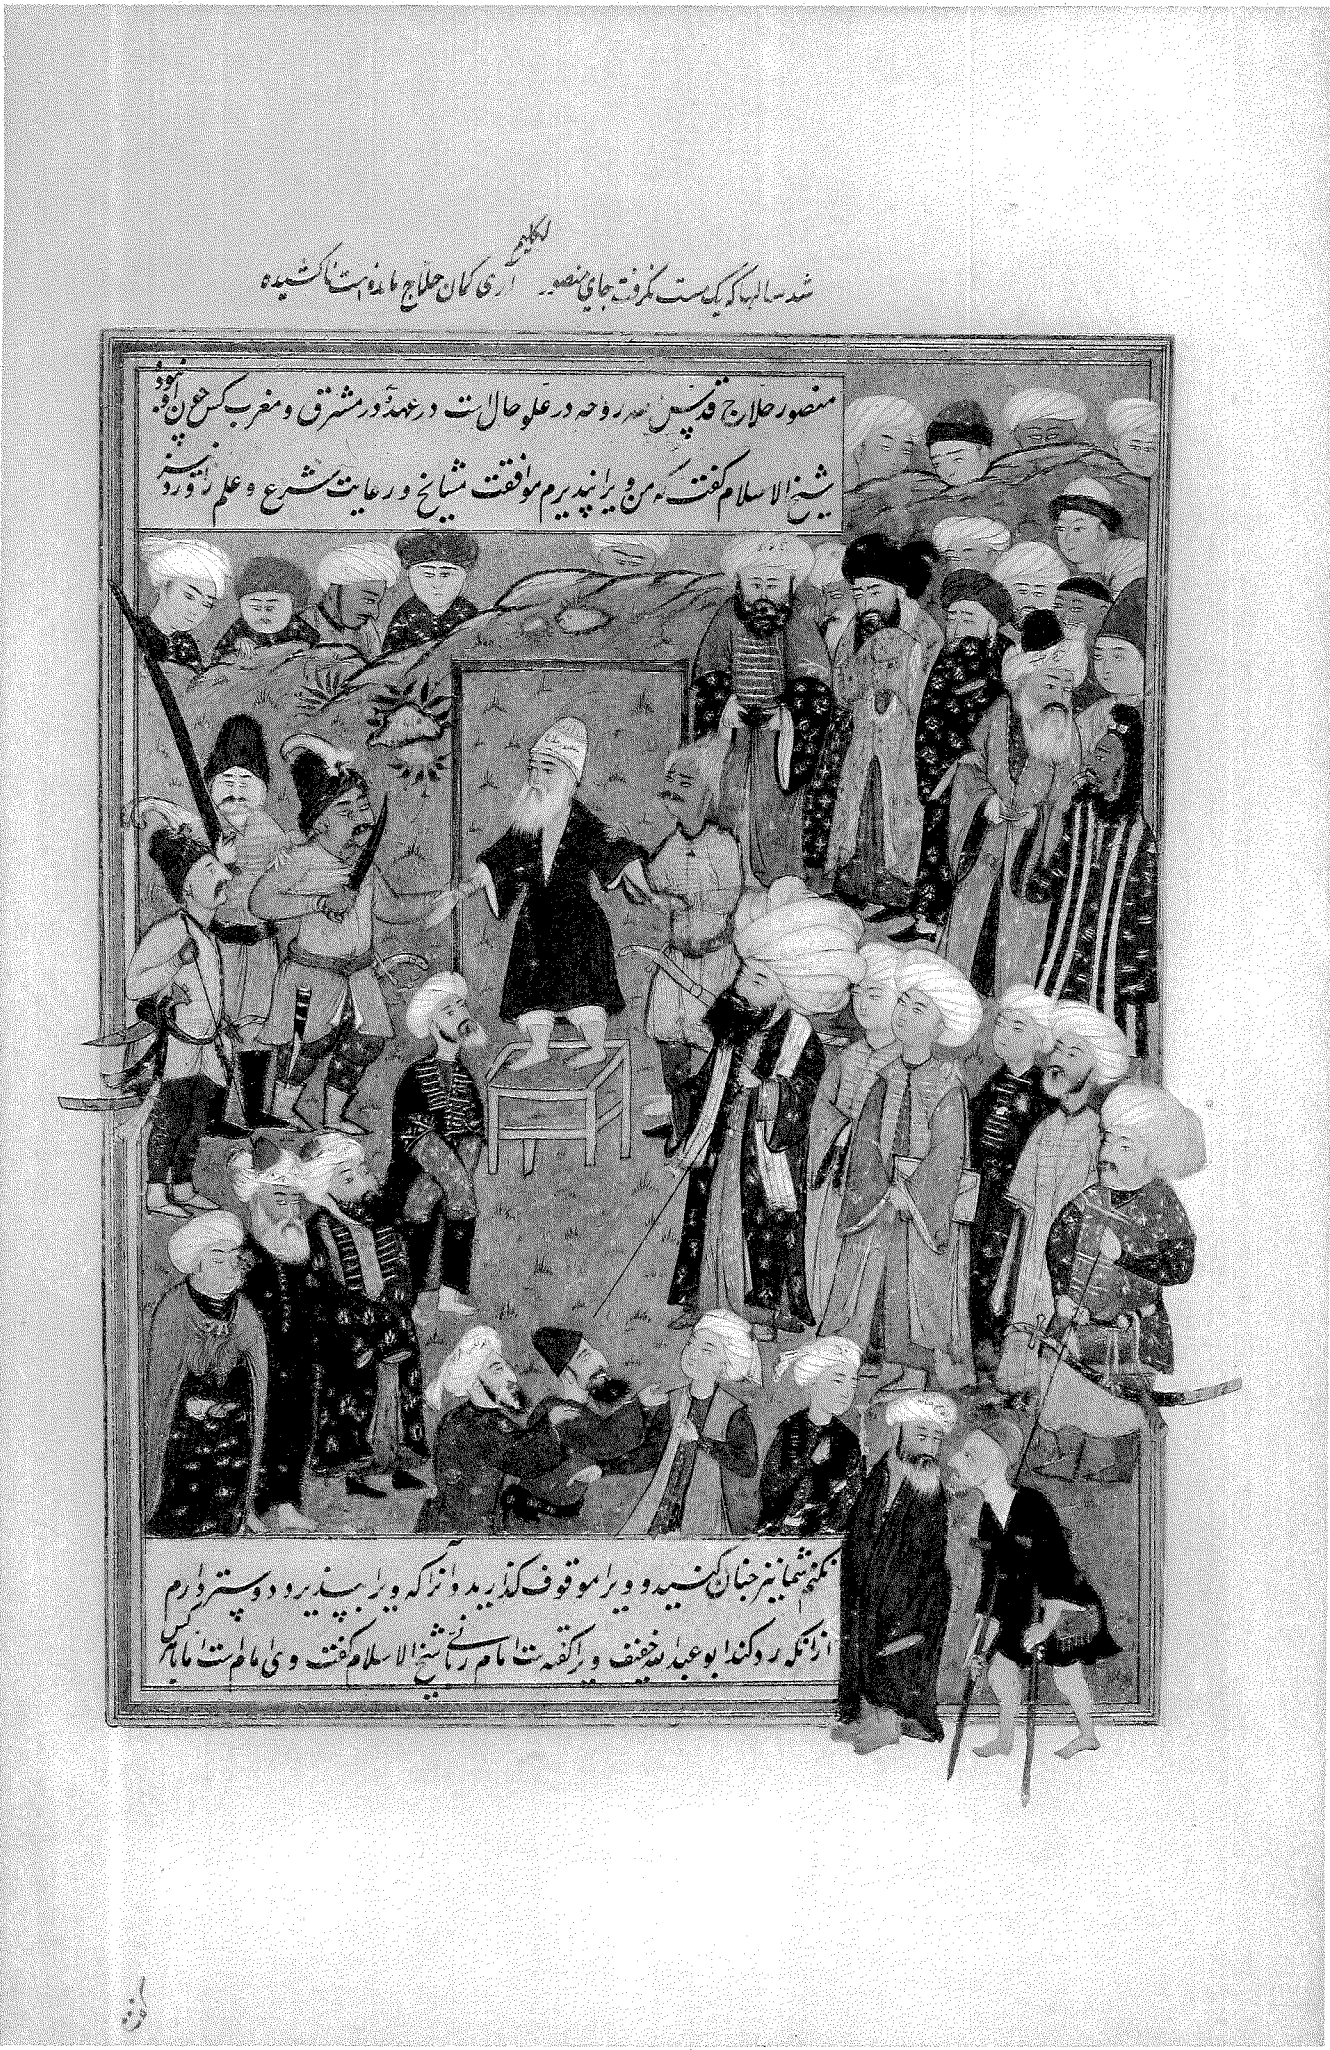 لکلیم
شد سالها که یک مست نگرفت جای منصور آری کمان حلاج مانده است ناکشیده
منصور حلاج قدس الله روحه در علو حال است در عهد وی در مشرق و مغرب کس چون او نبود
شیخ الاسلام گفت که من ویرا نپذیرم موافقت مشایخ و رعایت شرع و علم را و رد نیز
نکنم شما نیز چنان کنید و ویرا موقوف گذارید و آنرا که ویرا بپذیرد دوستر دارم
از آنکه رد کند ابو عبدالله خفیف ویرا گفته است امام ربانی شیخ الاسلام گفت وی امام است اما با هر کس